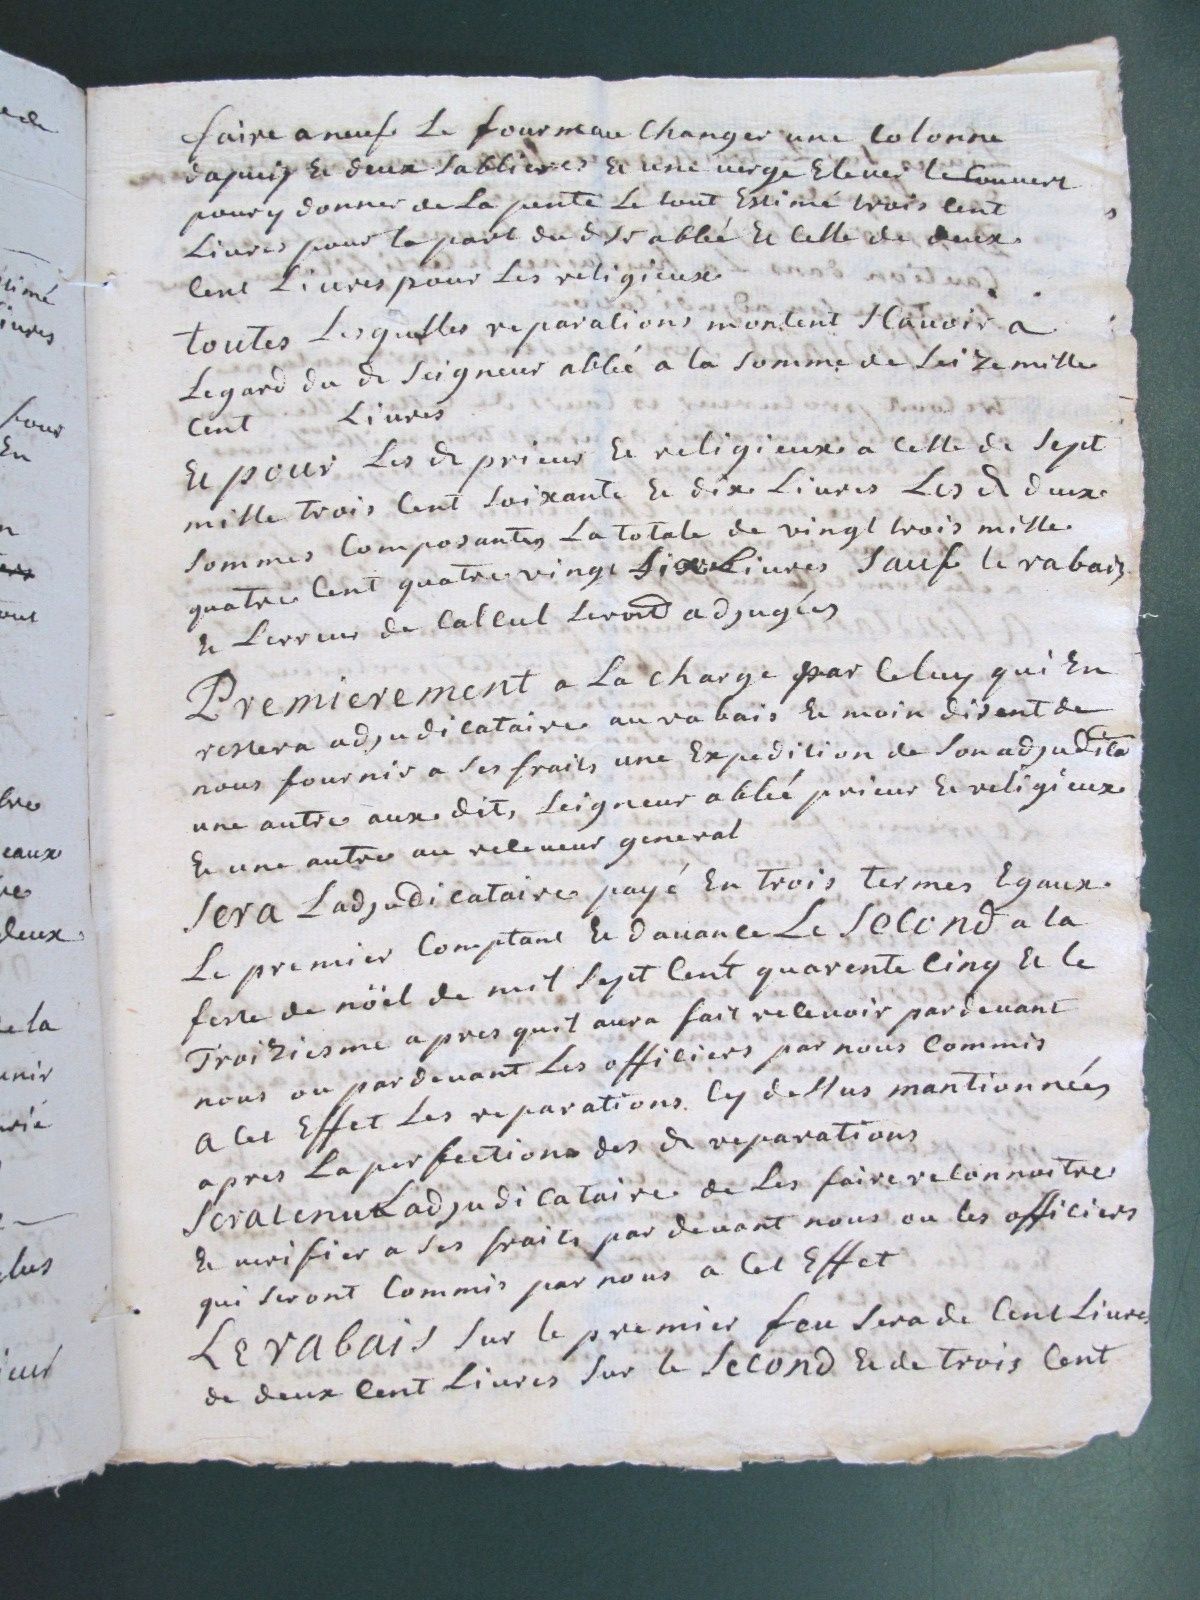 faire a neuf Le fourneau Changer une Colonne
dapuis & deux Sablieres & une verge Elever le Couvert
pour y donner de La pente Le tout Estimé trois Cent
Livres pour la part du d Sr abbé & Celle de deux
Cent Livres pour Les religieux
toutes Lesquelles reparations montent Scavoir a
Legard du d Seigneur abbé a la Somme de Seize mille
Cent Livres
& pour Les d prieur & religieux a Celle de Sept
mille trois Cent Soixante & dix Livres Les d deux
Sommes Composantes La totale de vingt trois mille
quatre Cent quatre vingt Livres Sauf le rabais
& Lerreur de Calcul Seront adjugées
Premierement a La charge par Celuy qui En
restera adjudicataire au rabais & moin disent de
nous fournir a Ses fraits une Expedition de Son
une autre aux dits Seigneur abbé prieur & religieux
& une autre au receveur general
Sera Ladjudicataire payé En trois termes Egaux
Le premier Comptant & davance Le Second a la
feste de nöel de mil Sept Cent quarente Cinq & le
Troiziesme apres quil aura fait recevoir pardevant
nous ou pardevant Les officiers par nous Commis
a Cet Effet Les reparations Cy dessus mantionnées
apres La perfection des d reparations
Sera tenu Ladjudicataire de Les faire reconnoitre
& verifier a Ses fraits par devant nous ou les officiers
qui Seront Commis par nous a Cet Effet
Le rabais Sur le premier feu Sera de Cent Livres
de deux Cent Livres Sur le Second & de trois Cent